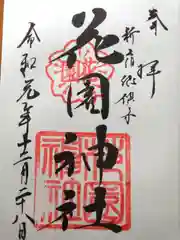 奉拝
新宿総鎮守
花園神社
令和元年十二月二十八日